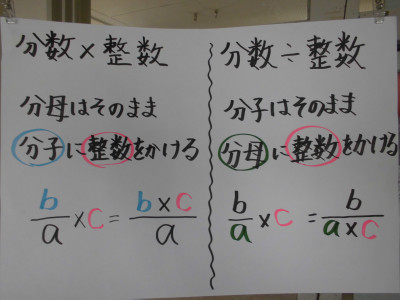 分数×整数
分母はそのまま
分子に整数をかける
b/a×c=b×c/a
分数÷整数
分子はそのまま
分母に整数をかける
b/a×c=b/a×c